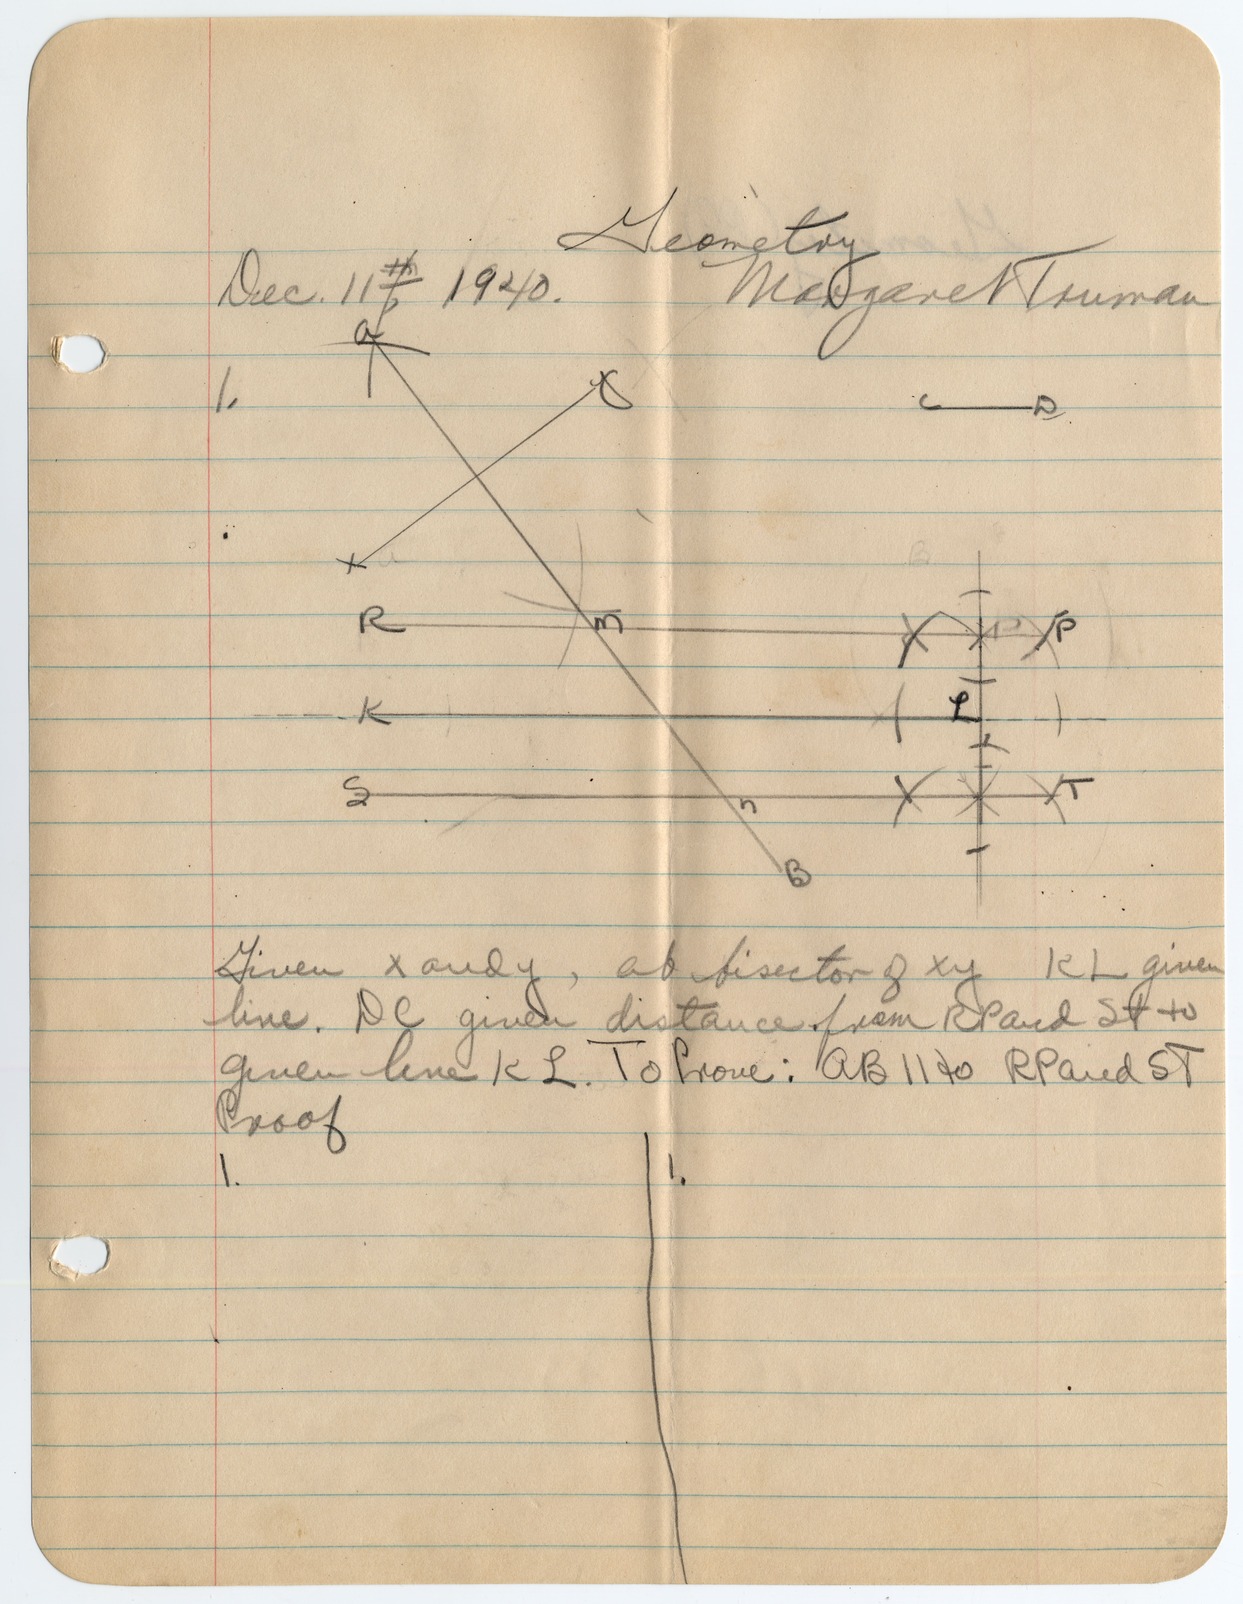 Geometry
Dec. 11th 1940. Margaret Truman
a
1. C D
x
R m P
K L
S n T
B
Given x and y, ab bisector of xy KL given
line. DC given distance from RP and ST to
given line KL. To Prove: AB || to RP and ST
Proof
1. 1.